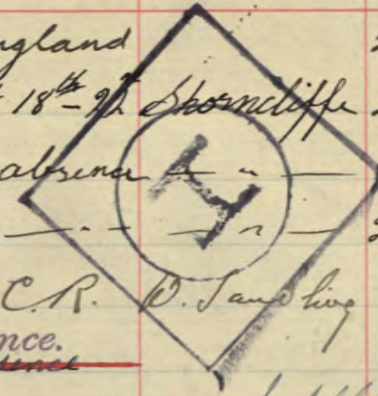 ngland
18th-22d Shorncliffe
absence — " —
— " — — " —
C.R. D. Sandling
nce.
H